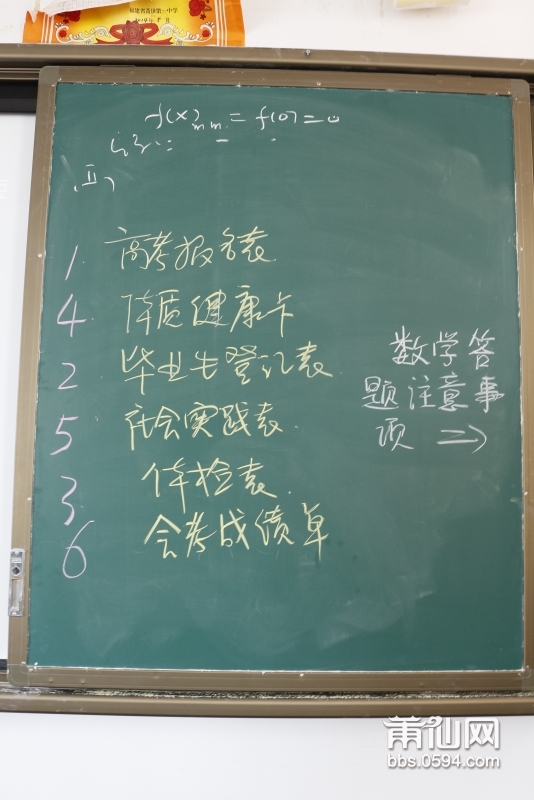 福建省莆田第一中学
f(x)min = f(0) = 0
(Ⅱ)
1 高考报名表
4 体质健康卡
2 毕业生登记表
5 社会实践表
3 体检表
6 会考成绩单
数学答
题注意事
项 =>
莆仙网
bbs.0594.com